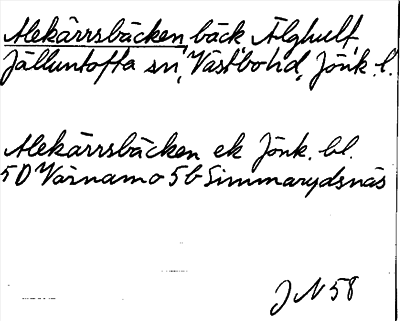 Alekärrsbäcken, bäck, Älghult,
Jälluntofta sn, Västbo hd, Jönk. l.
Alekärrsbäcken ek Jönk. bl.
5D Värnamo 5b Simmarydsnäs
J N 58